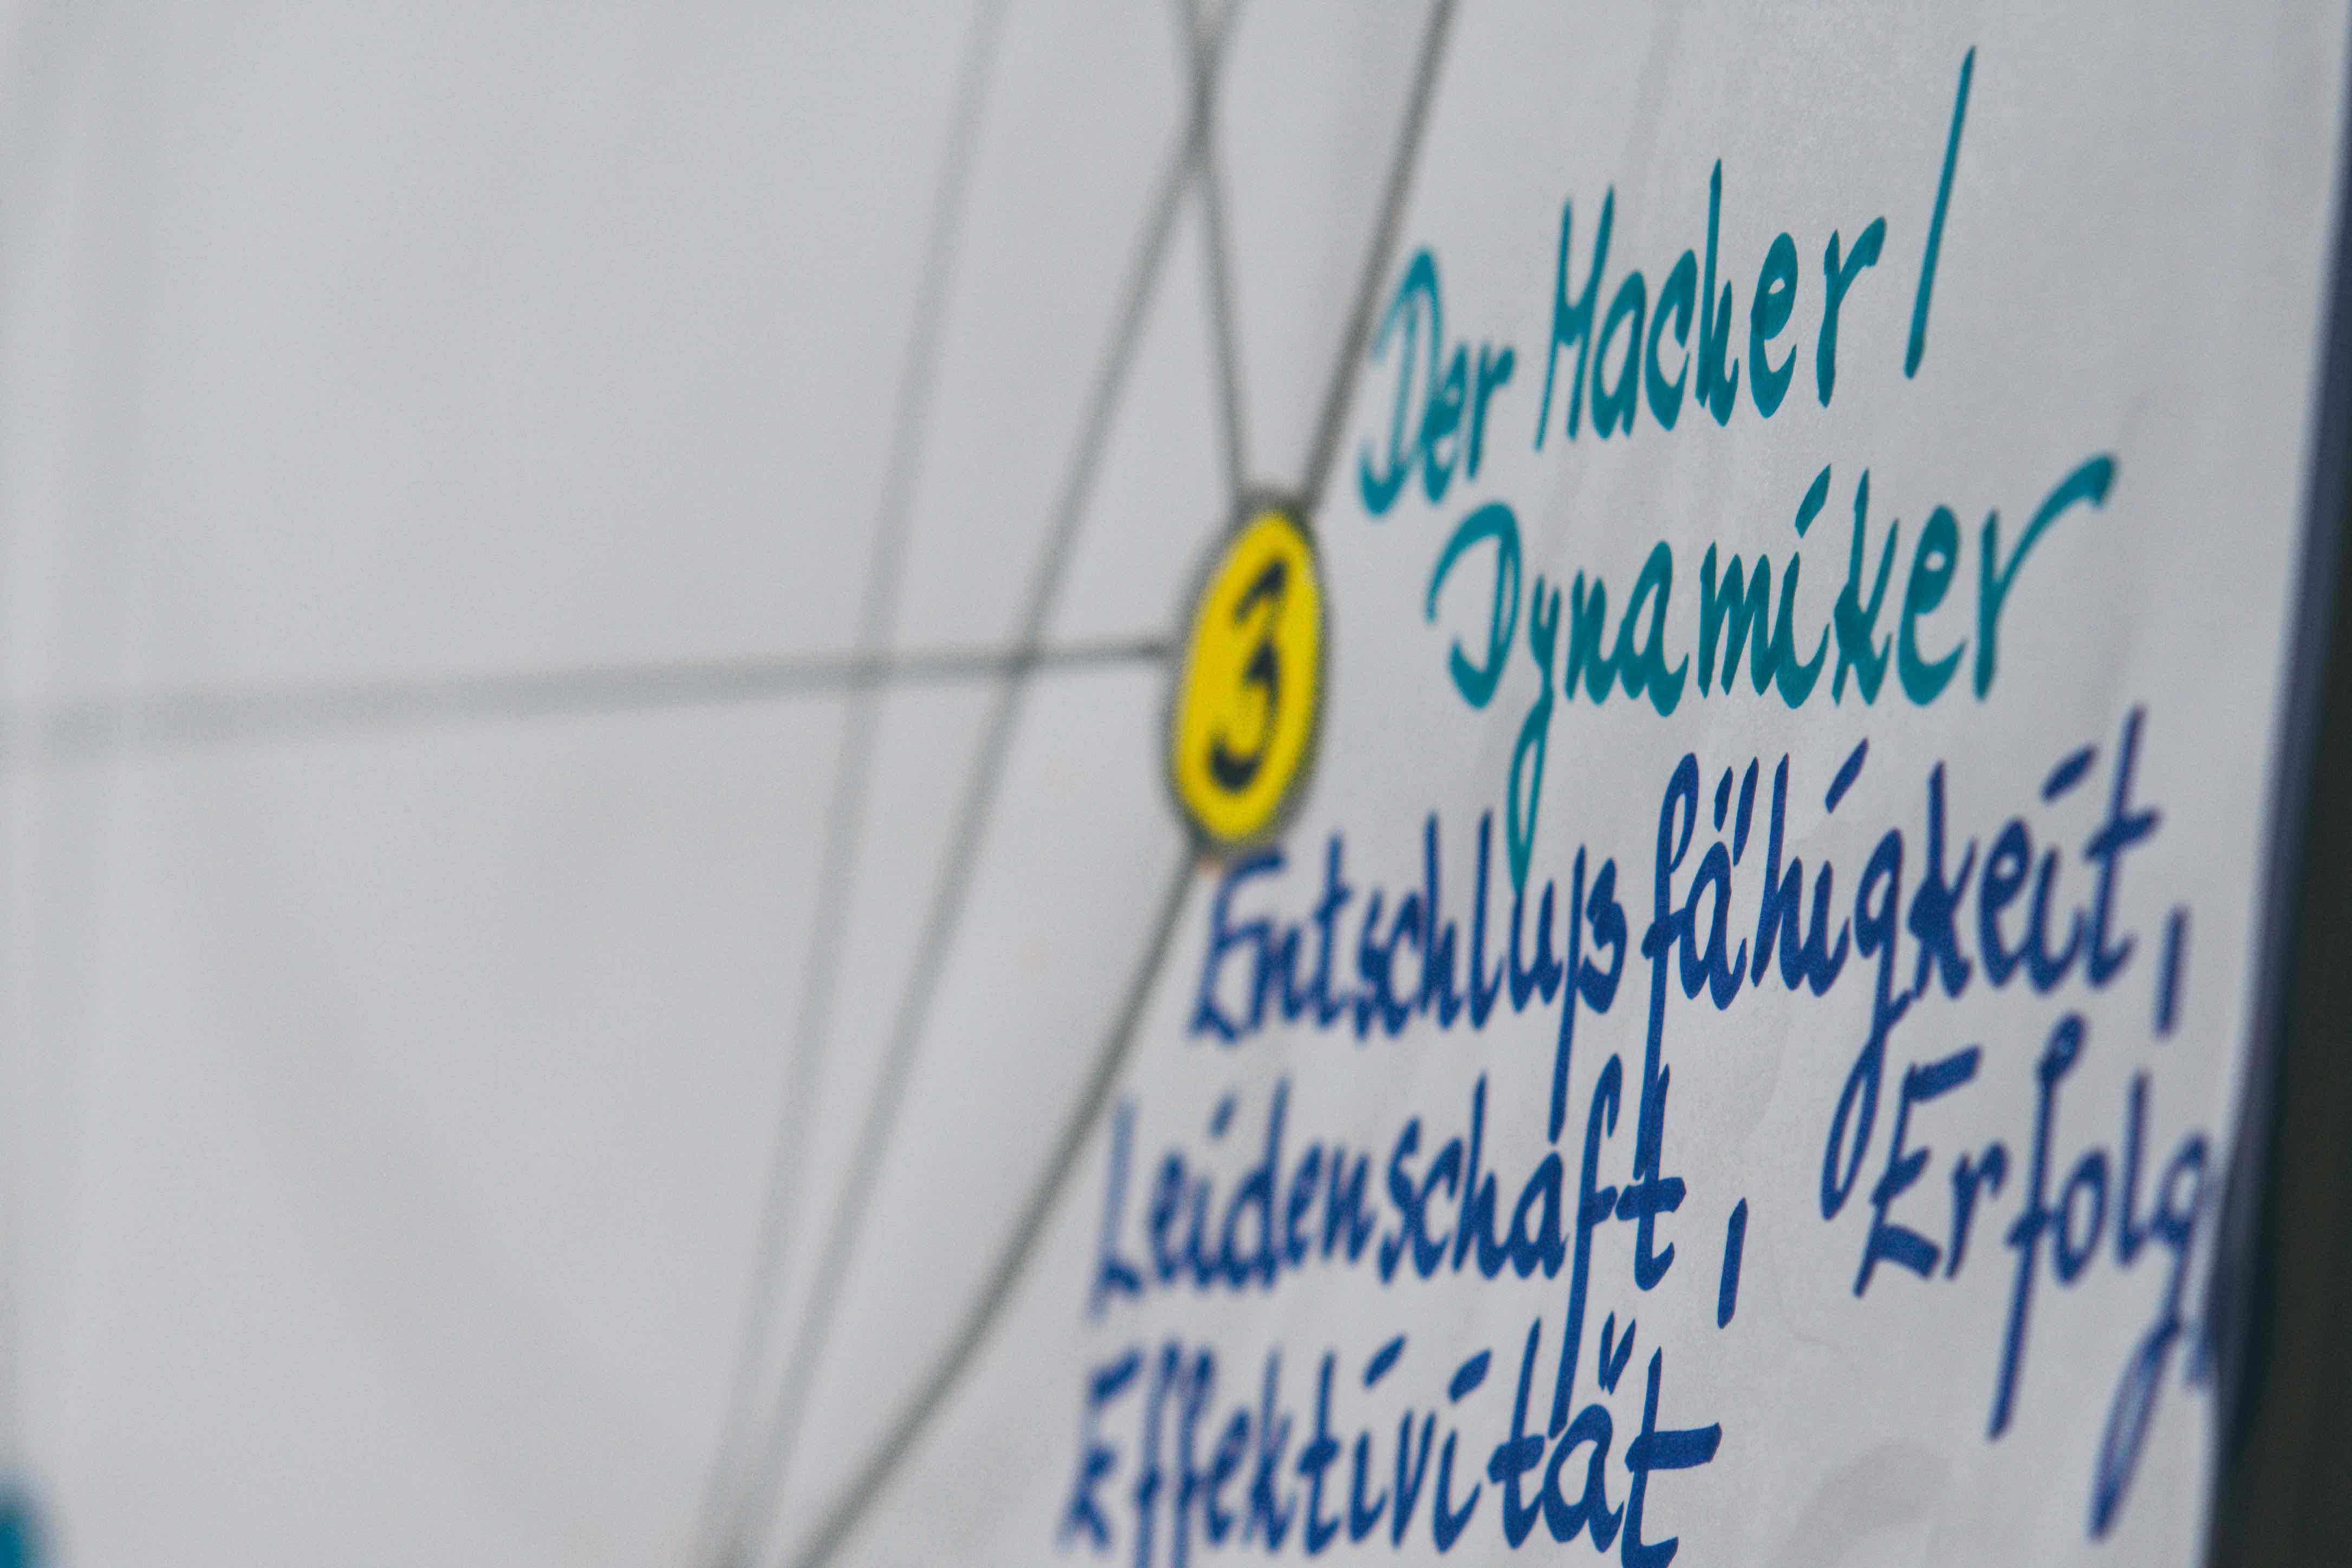 3
Der Macher/
Dynamiker
Entschlußfähigkeit,
Leidenschaft, Erfolg
Effektivität